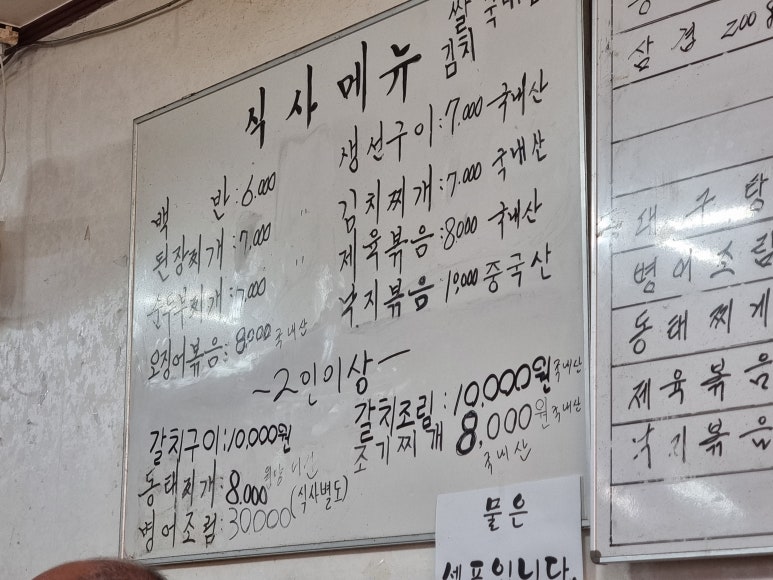 쌀 국내산
김치
식사메뉴
백 반:6.000
된장찌개:7,000 〃
순두부찌개:7,000 〃
오징어볶음:8000 국내산
생선구이:7.000 국내산
김치찌개:7.000 국내산
제육볶음:8000 국내산
낙지볶음:10,000 중국산
~2인이상~
갈치구이:10,000원
동태찌개:8,000
병어조림:30000(식사별도)
갈치조림:10,000원 국내산
조기찌개 8,000원 국내산
국내산
물은
셀프입니다.
삼겹 200g
대구탕
병어조림
동태찌게
제육볶음
낙지볶음